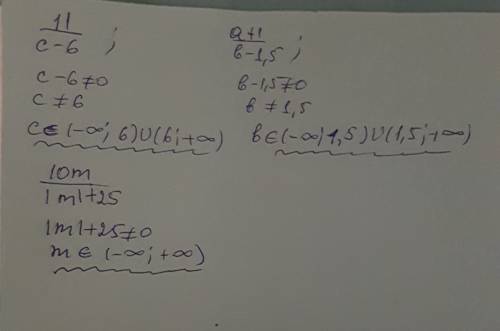 11
c-6 ;
c-6≠0
c≠6
c∈(-∞; 6)∪(6;+∞)
a+1
b-1,5 ;
b-1,5≠0
b≠1,5
b∈(-∞;1,5)∪(1,5;+∞)
10m
|m|+25
|m|+25≠0
m∈(-∞;+∞)